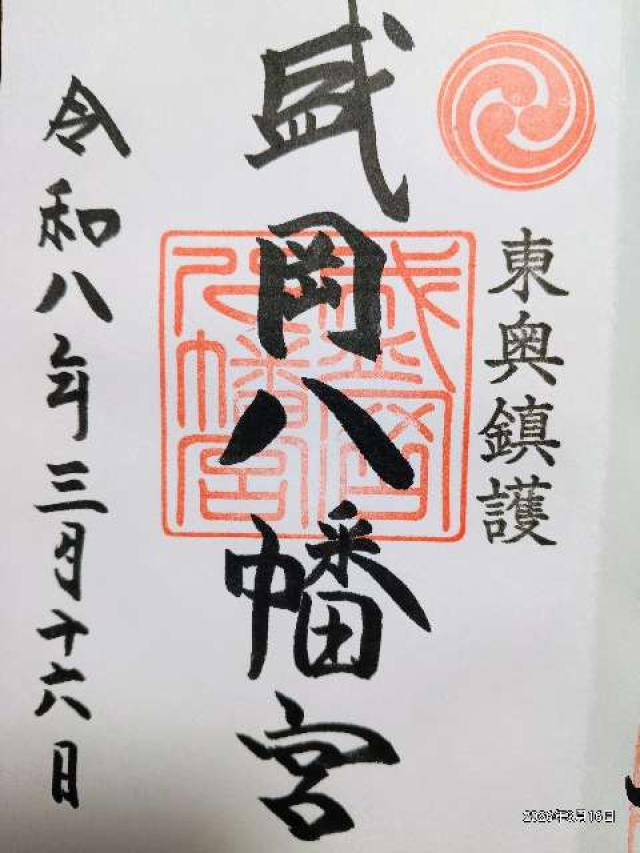 東奥鎮護
盛岡八幡宮
盛岡八幡宮
令和八年三月十六日
2026年3月16日